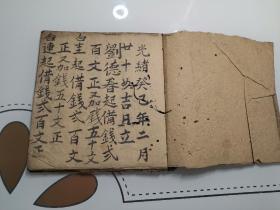 光緒癸巳年二月
廿十日吉日立
劉德香起備錢弍
百文正又加錢五十文
台生起備錢弍百文
正又加錢五十文正
台連起備錢弍百文正